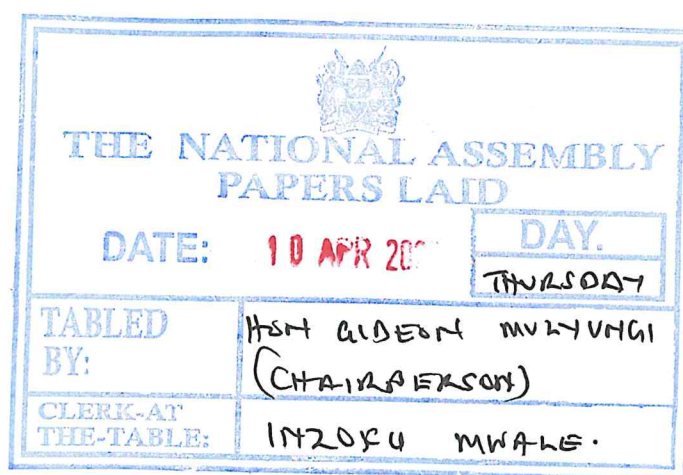 THE NATIONAL ASSEMBLY
PAPERS LAID
DATE: 10 APR
DAY.
THURSDAY
TABLED BY:
HON GIDEON MULYUNGI
(CHAIRPERSON)
CLERK-AT THE-TABLE:
INZOFU MWALE.